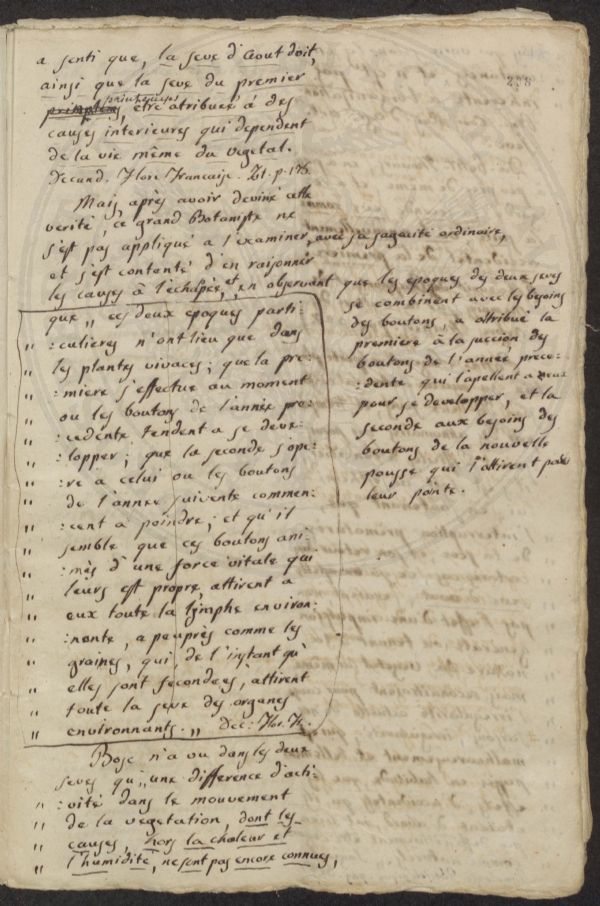 238
a senti que, la seve d'Aout doit,
ainsi que la seve du premier
printems printemps, etre atribuée à des
causes interieures qui dependent
de la vie même du vegetal.
Decand. Flore Francaise. t1. p.
Mais, après avoir deviné cette
verité, ce grand Botaniste ne
s'est pas appliqué a l'examiner, avec sa sagacité ordinaire,
et s'est contenté d'en raisonner
les causes à l'echapée, et, en observant que les epoques des deux seves
se combinent avec les besoins
des boutons, a attribué la
premiere à la succion des
boutons de l'année prece:
:dente qui l'apellent a eux
pour se developper, et la
seconde aux besoins des
boutons de la nouvelle
pousse qui l'attirent
leur pointe.
que „ ces deux epoques parti:
„ :culieres n'ont lieu que dans
„ les plantes vivaces; que la pre:
„ :miere s'effectue au moment
„ ou les boutons de l'année pre:
„ :cedente, tendent a se deve:
„ :lopper; que la seconde s'ope:
„ :re a celui ou les boutons
„ de l'annee suivente commen:
„ :cent a poindre; et qu'il
„ semble que ces boutons ani:
„ :més d'une force vitale qui
„ leurs est propre, attirent a
„ eux toute la lymphe environ:
„ :nante, a peuprès comme les
„ graines, qui, de l'instant qu'
„ elles sont fecondées, attirent
„ toute la seve des organes
„ environnants. „ Dec: Flor. Fr.
Bosc n'a vu dans les deux
seves qu', une difference d'acti:
„ :vité dans le mouvement
„ de la vegetation, dont les
„ causes, hors la chaleur et
„ l'humidité, ne sont pas encore connues,